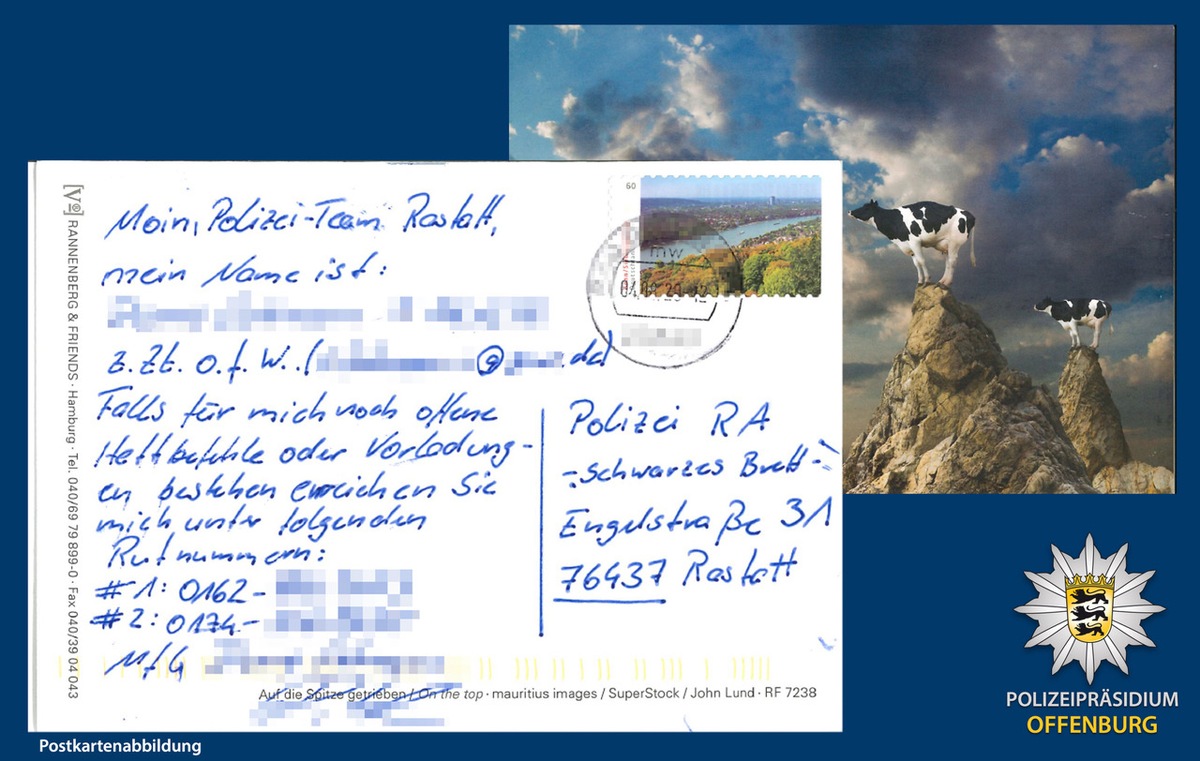 [V®] RANNENBERG & FRIENDS · Hamburg · Tel. 040/69 79 899-0 · Fax 040/39 04 043
Moin, Polizei-Team Rastatt,
mein Name ist:
z.Zt. o.f.W. (
@ .de)
Falls für mich noch offene
Haftbefehle oder Vorladung-
en bestehen erreichen Sie
mich unter folgenden
Rufnummern:
#1: 0162-
#2: 0174-
MfG
60
Polizei RA
-Schwarzes Brett-
Engelstraße 31
76437 Rastatt
Auf die Spitze getrieben / On the top · mauritius images / SuperStock / John Lund · RF 7238
Postkartenabbildung
POLIZEIPRÄSIDIUM
OFFENBURG